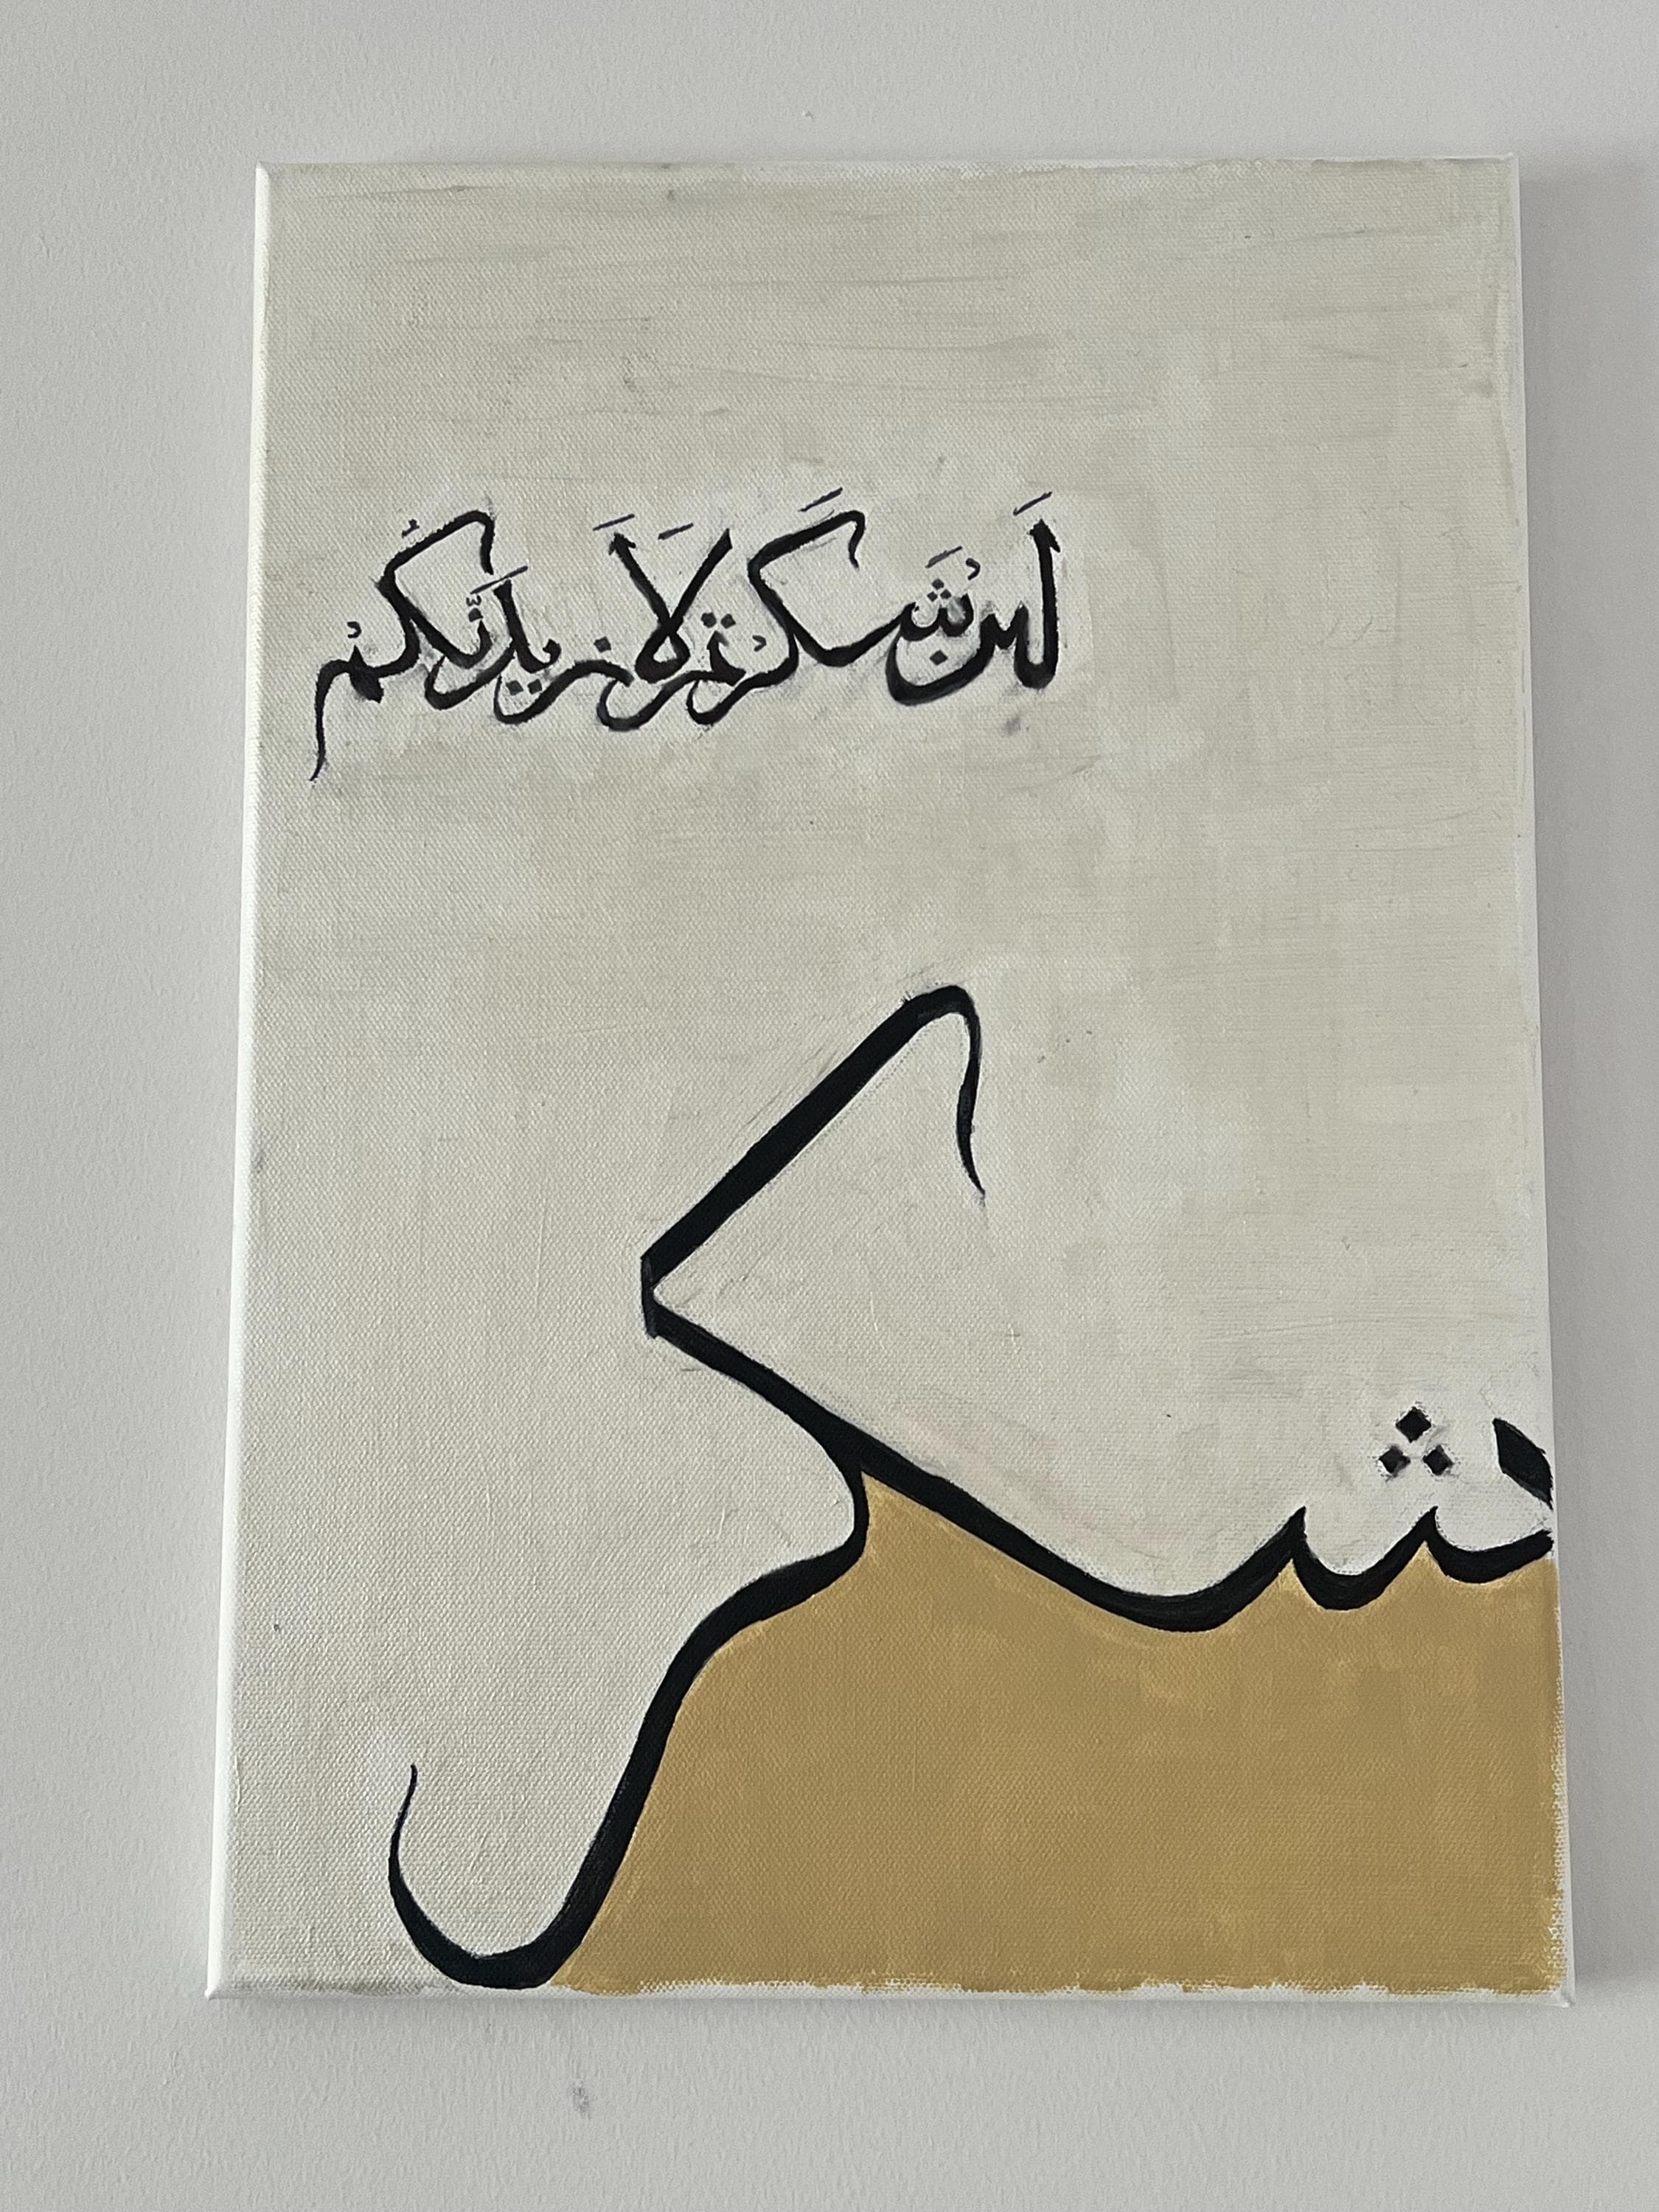 لَئِنْ شَكَرْتُمْ لَأَزِيدَنَّكُمْ
شكر